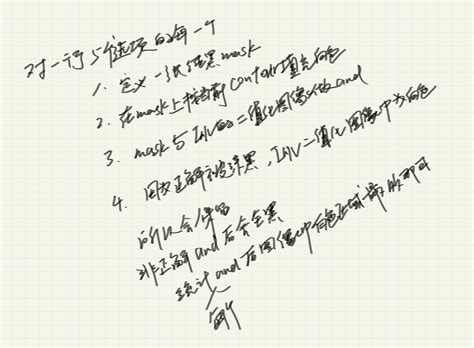 对一行5个选项的每一个
1. 定义一张纯黑mask
2. 在mask上将当前contour填充白色
3. mask与INV的二值化图像做and
4. 因为正解被涂黑，INV二值化图像中为白色
所以会保留
非正解and后会全黑
统计and后图像中白色区域最大的即可
解